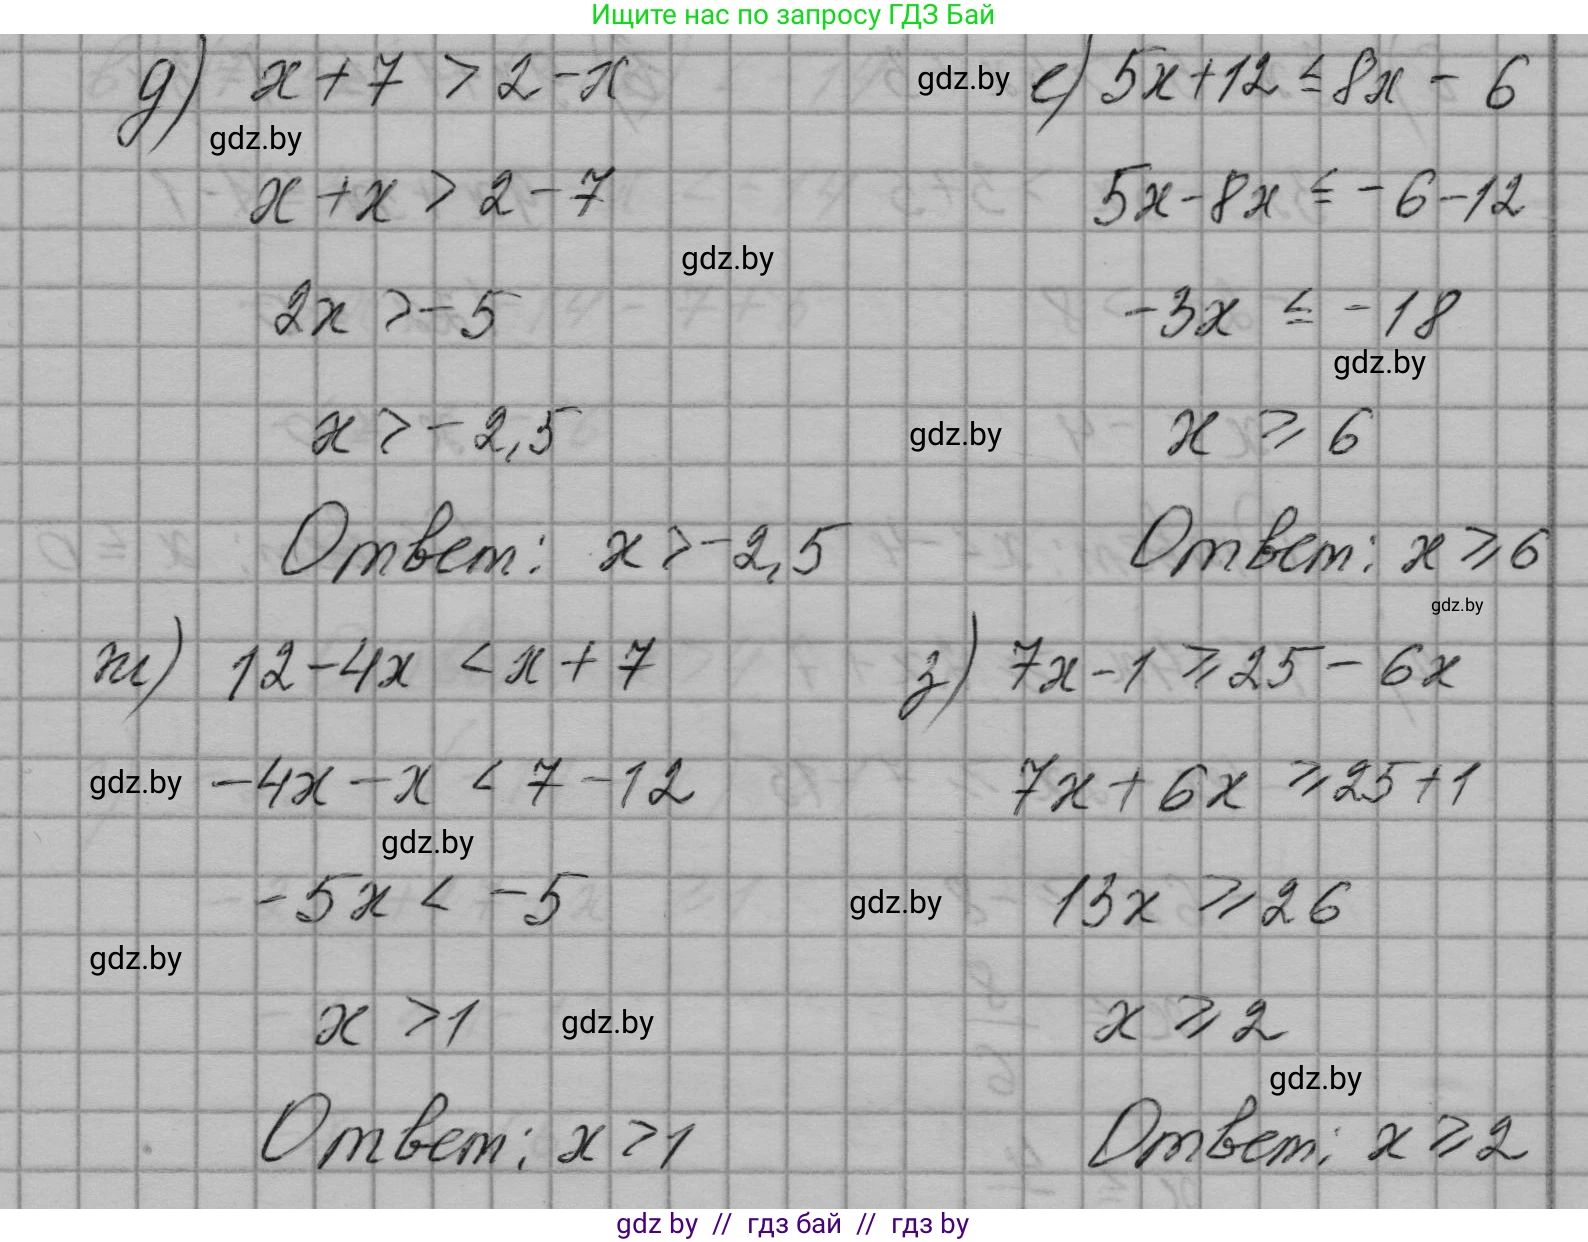 Ищите нас по запросу ГДЗ Бай
д) x + 7 > 2 - x
gdz.by
x + x > 2 - 7
gdz.by
2x > - 5
x > - 2,5
Ответ: x > - 2,5
gdz.by
е) 5x + 12 ≤ 8x - 6
5x - 8x ≤ - 6 - 12
-3x ≤ - 18
gdz.by
gdz.by
x ⩾ 6
Ответ: x ⩾ 6
gdz.by
ж) 12 - 4x < x + 7
gdz.by
-4x - x < 7 - 12
gdz.by
-5x < -5
gdz.by
x > 1
gdz.by
Ответ: x > 1
з) 7x - 1 ⩾ 25 - 6x
7x + 6x ⩾ 25 + 1
gdz.by
13x ⩾ 26
x ⩾ 2
gdz.by
Ответ: x ⩾ 2
gdz by // гдз бай // гдз by